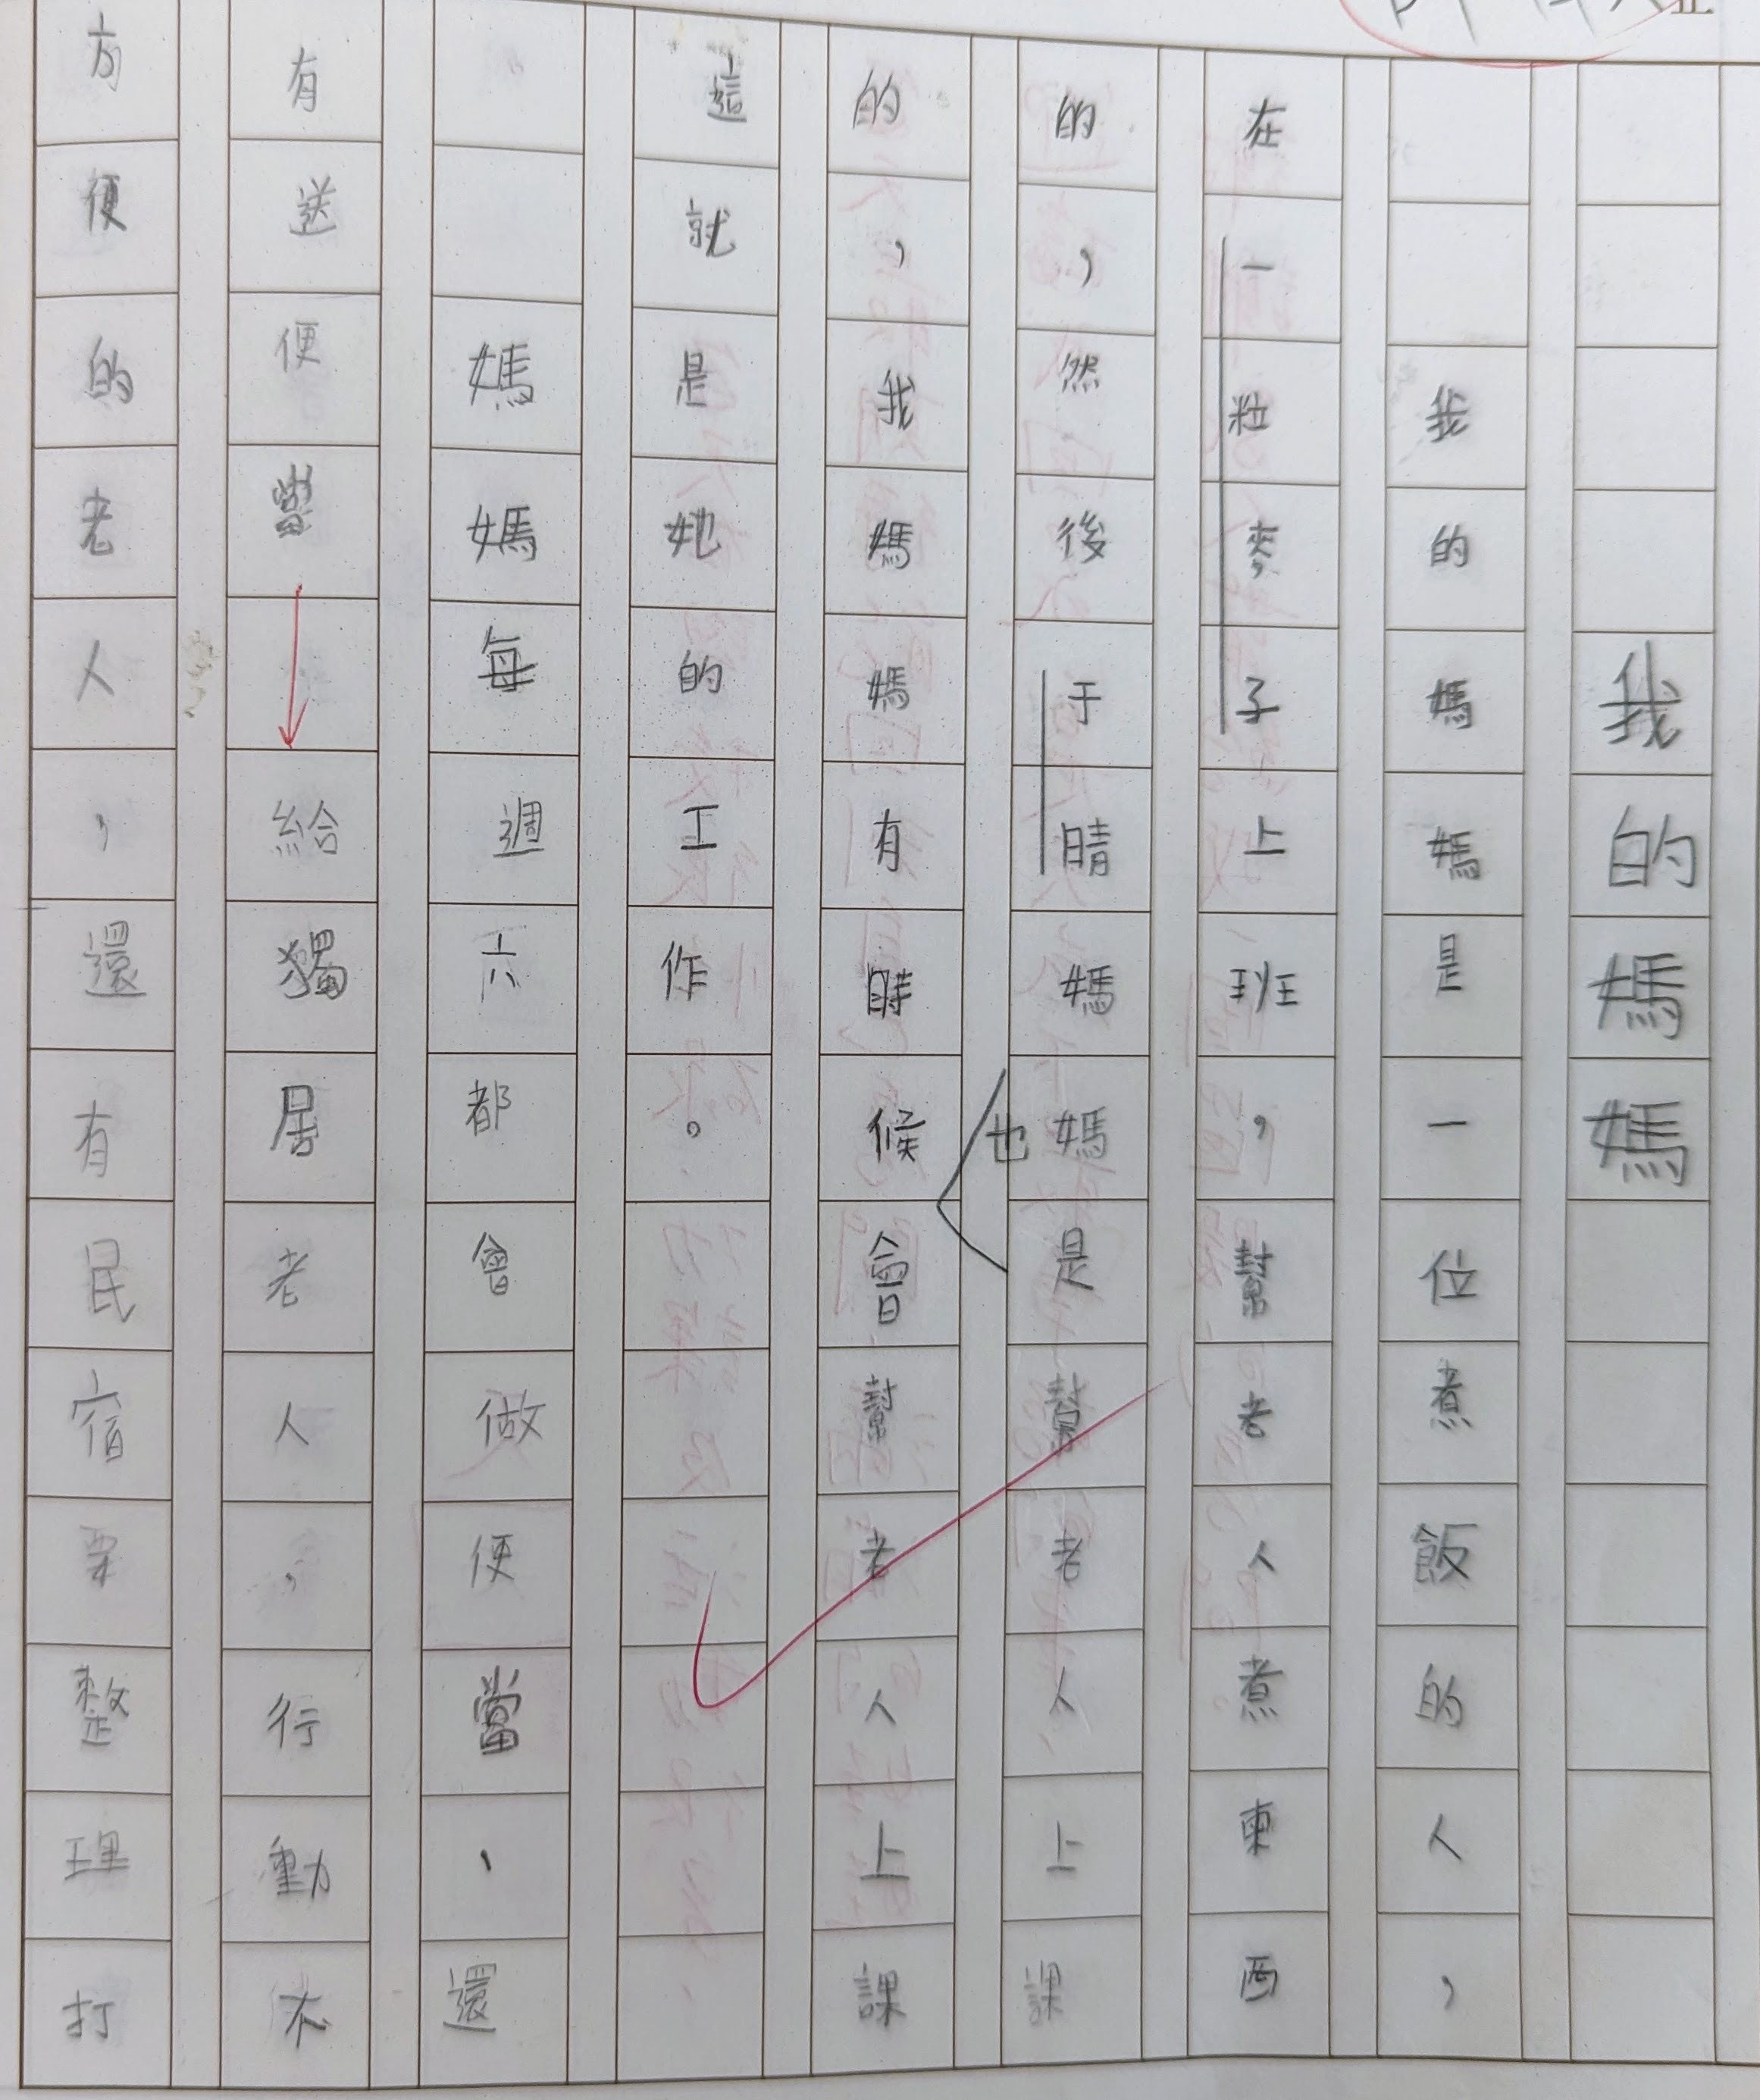 我的媽媽
我的媽媽是一位煮飯的人，
在一粒麥子上班，幫老人煮東西
的，然後于晴媽媽是幫老人上課
的，我媽媽有時候也會幫老人上課
這就是她的工作。
媽媽每週六都會做便當、還
有送便當給獨居老人，行動不
方便的老人，還有民宿要整理打